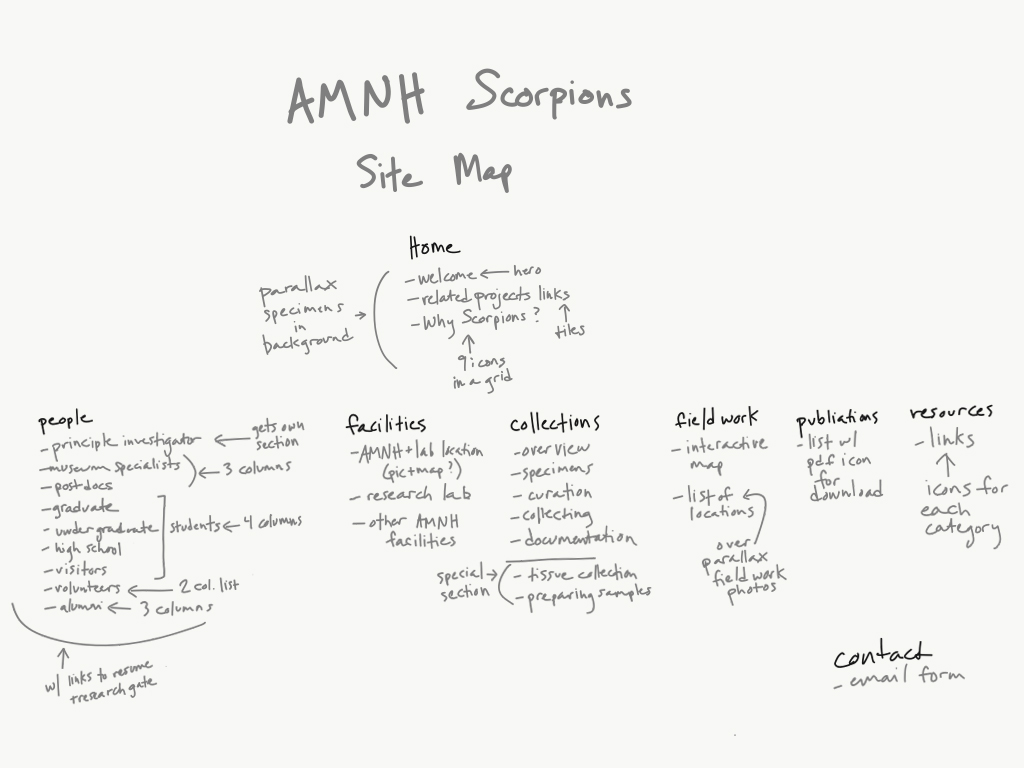 AMNH Scorpions
Site Map
Home
- welcome ← hero
- related projects links
- Why Scorpions?
↑
tiles
↑
9 icons
in a grid
parallax
specimens →
in
background
people
- principle investigator ← gets own
section
- museum specialists
- postdocs
← 3 columns
- graduate
- undergraduate
- high school
- visitors
students ← 4 columns
- volunteers ← 2 col. list
- alumni ← 3 columns
↑
w/ links to resume
+ research gate
facilities
- AMNH + lab location
(pic + map?)
- research lab
- other AMNH
facilities
collections
- overview
- specimens
- curation
- collecting
- documentation
special →
section
- tissue collection
- preparing samples
field work
- interactive
map
- list of
locations
over
parallax
field work
photos
publiations
- list w/
pdf icon
for
download
resources
- links
↑
icons for
each
category
contact
- email form